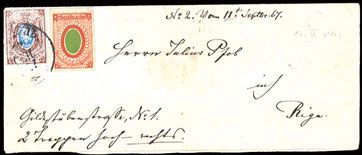 No 2. Vom 11ten Septbr. 67.
Herrn Julius
in
Riga.
Gildstubenstrasse, No. 1.
2 Treppen hoch – rechts.